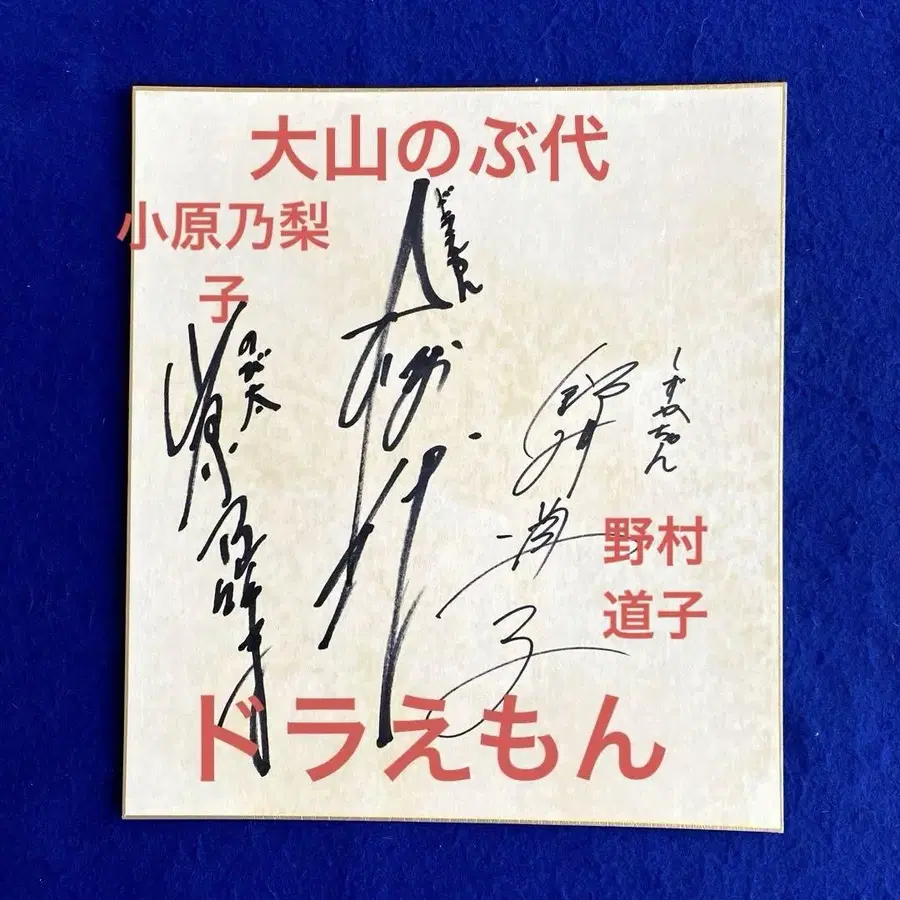 大山のぶ代
小原乃梨
子
ドラえもん
のび太
小原乃梨子
大山のぶ代
しずかちゃん
野村道子
野村
道子
ドラえもん